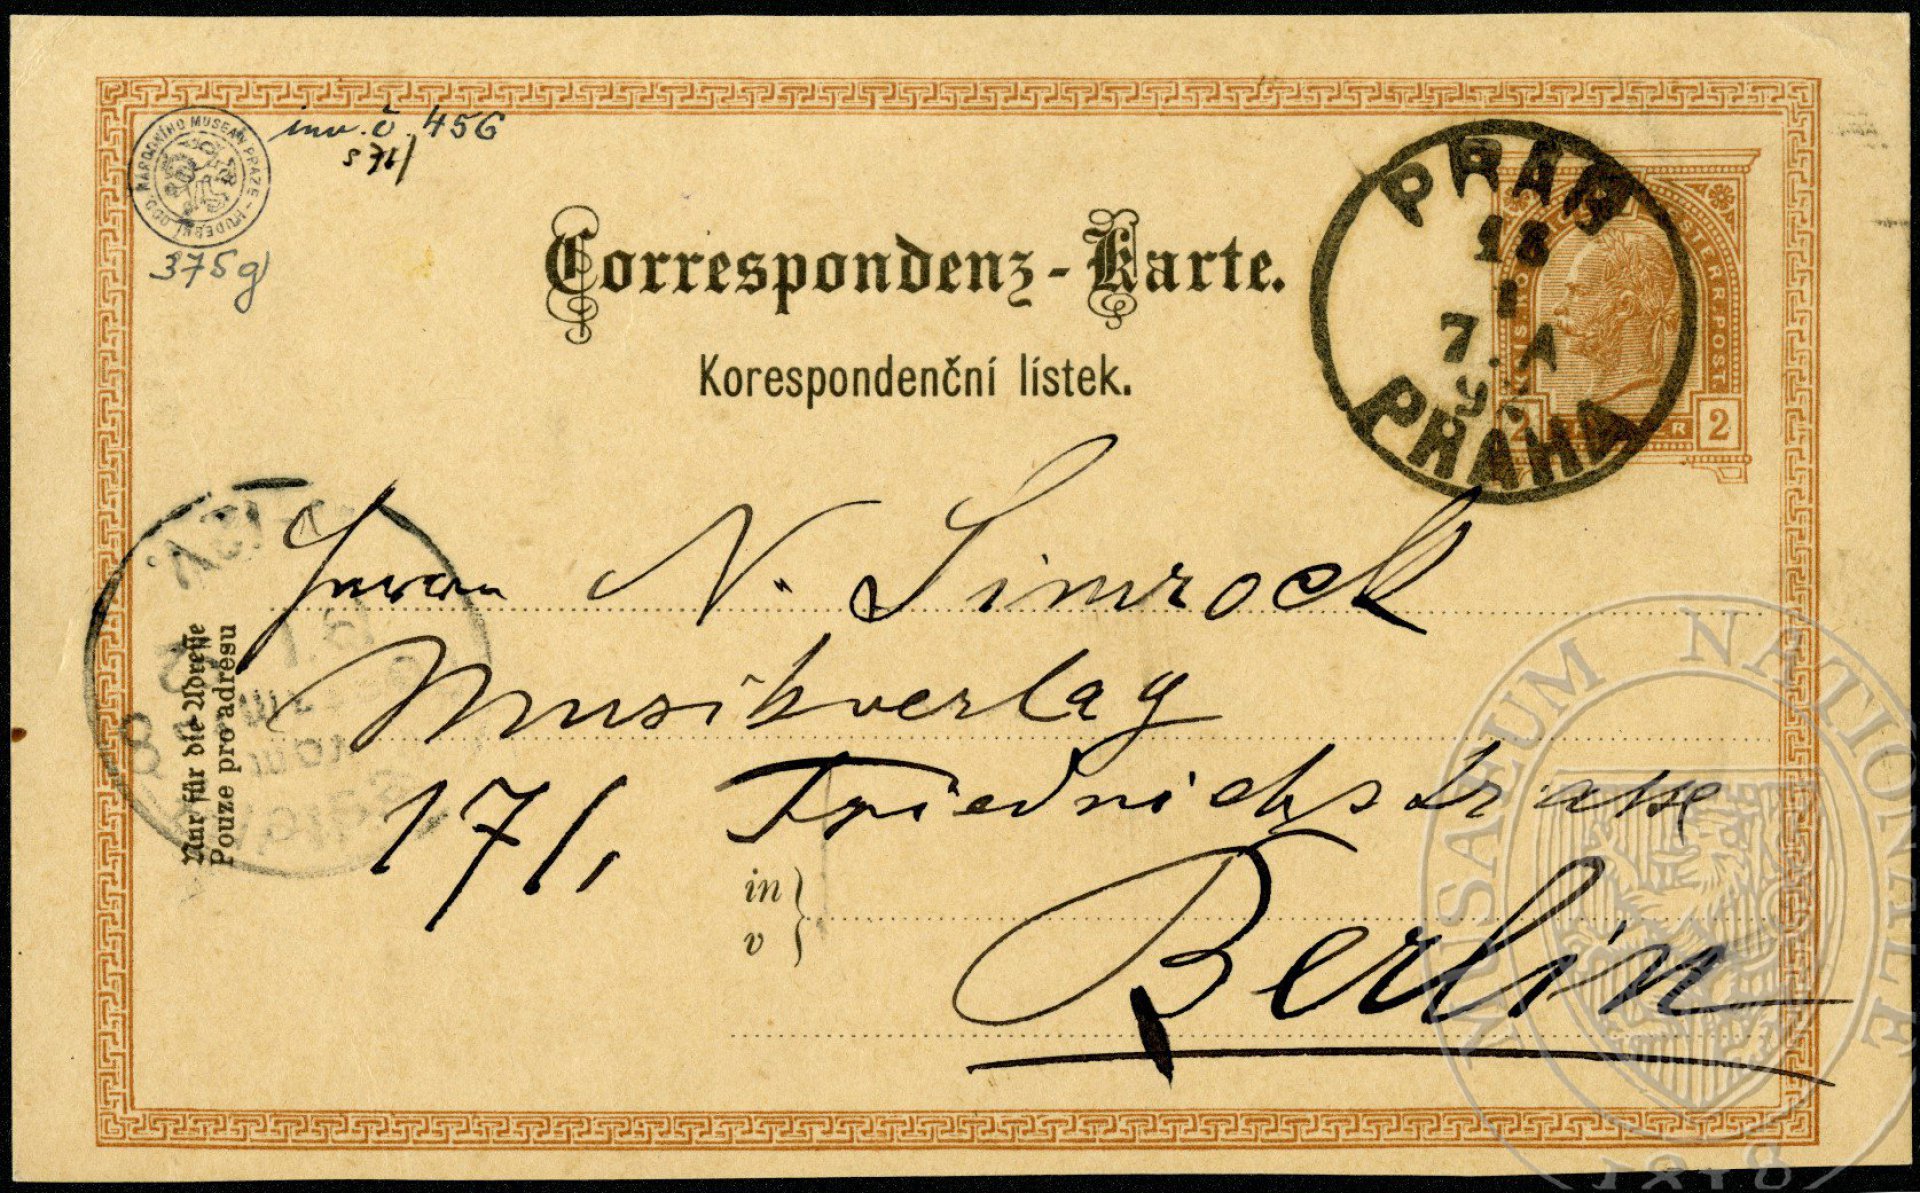 NÁRODNÍHO MUSEA V PRAZE - HUDEBNÍ ODD.
inv. č. 456
s 76/
375g
Correspondenz-Karte.
Korespondenční lístek.
PRAG
18
1
7.A
PRAHA
OESTERR. POST
2
2
Herrn N. Simrock
Musikverlag
171, Friedrichstrasse
in
v
Berlin
Nur für die Adresse
Pouze pro adresu
MUSAEUM NATIONALE
1818